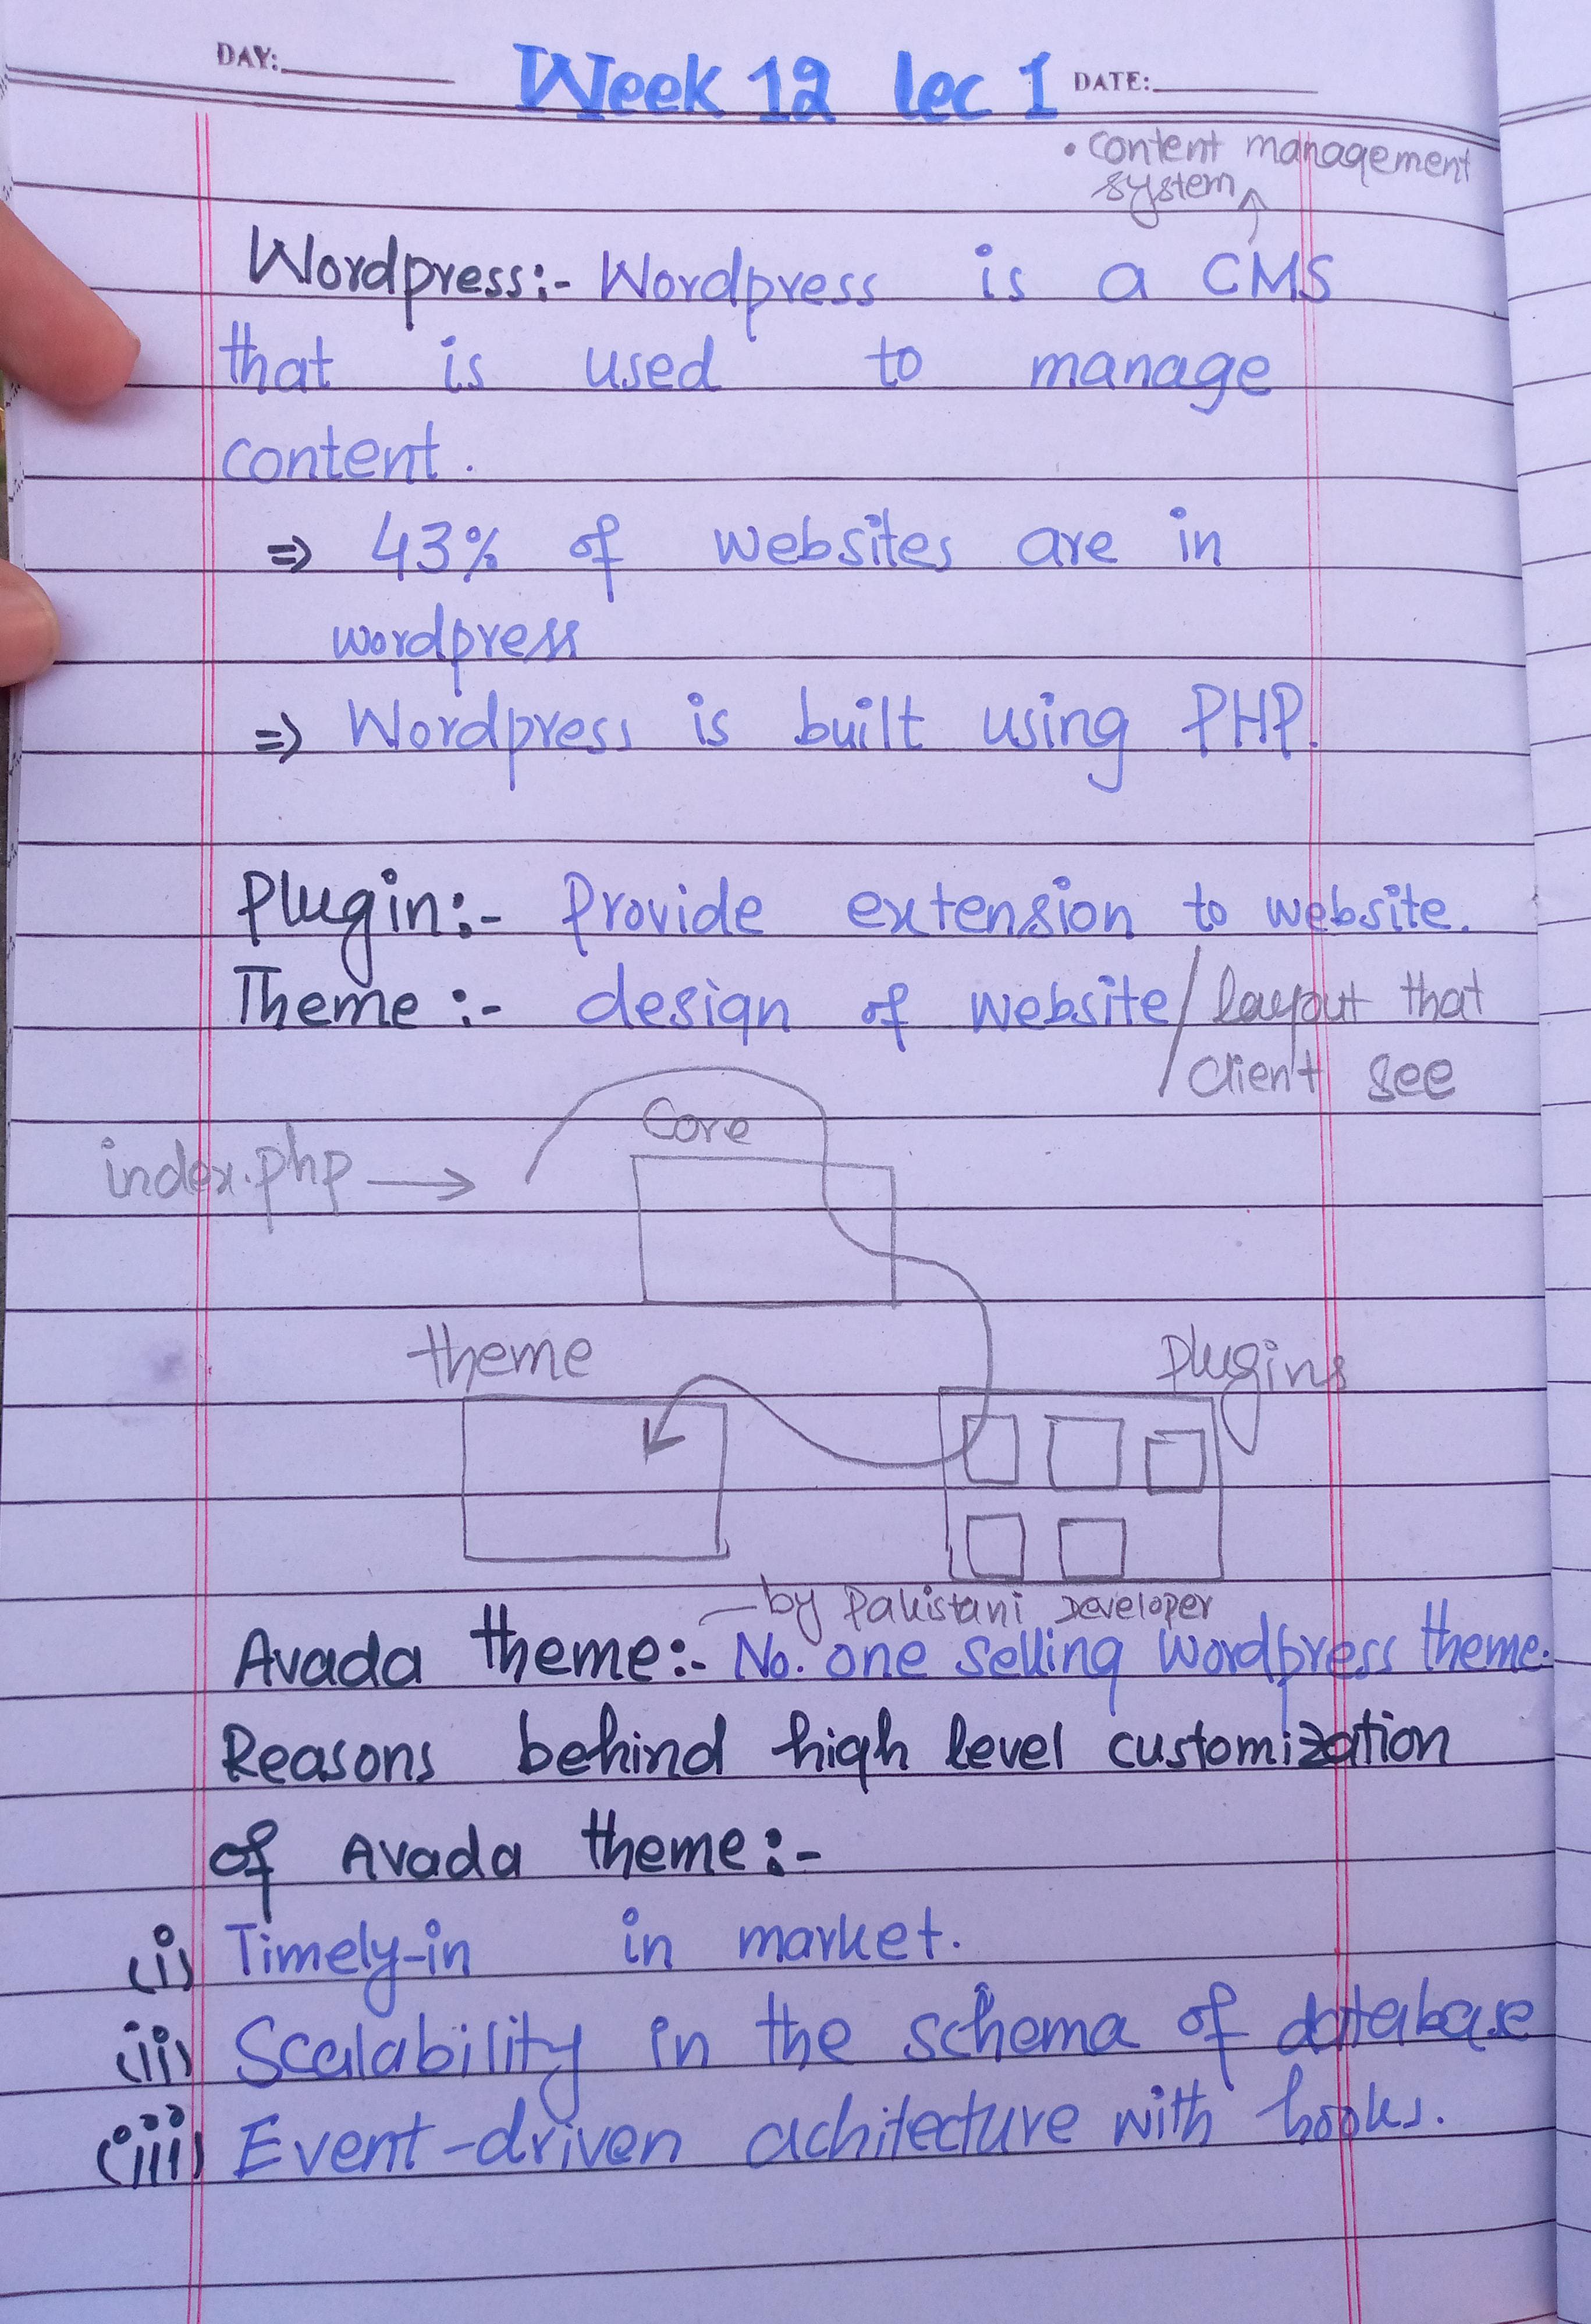 DAY: Week 12 lec 1 DATE:
• content management
system
Wordpress:- Wordpress is a CMS
that is used to manage
content.
⇒ 43% of websites are in
wordpress
⇒ Wordpress is built using PHP.
Plugin:- Provide extension to website.
Theme:- design of website/ layout that
client see
Core
index.php →
theme
Plugins
by Pakistani Developer
Avada theme:- No. one selling wordpress theme.
Reasons behind high level customization
of Avada theme:-
(i) Timely-in in market.
(ii) Scalability in the schema of database
(iii) Event-driven achitecture with hooks.